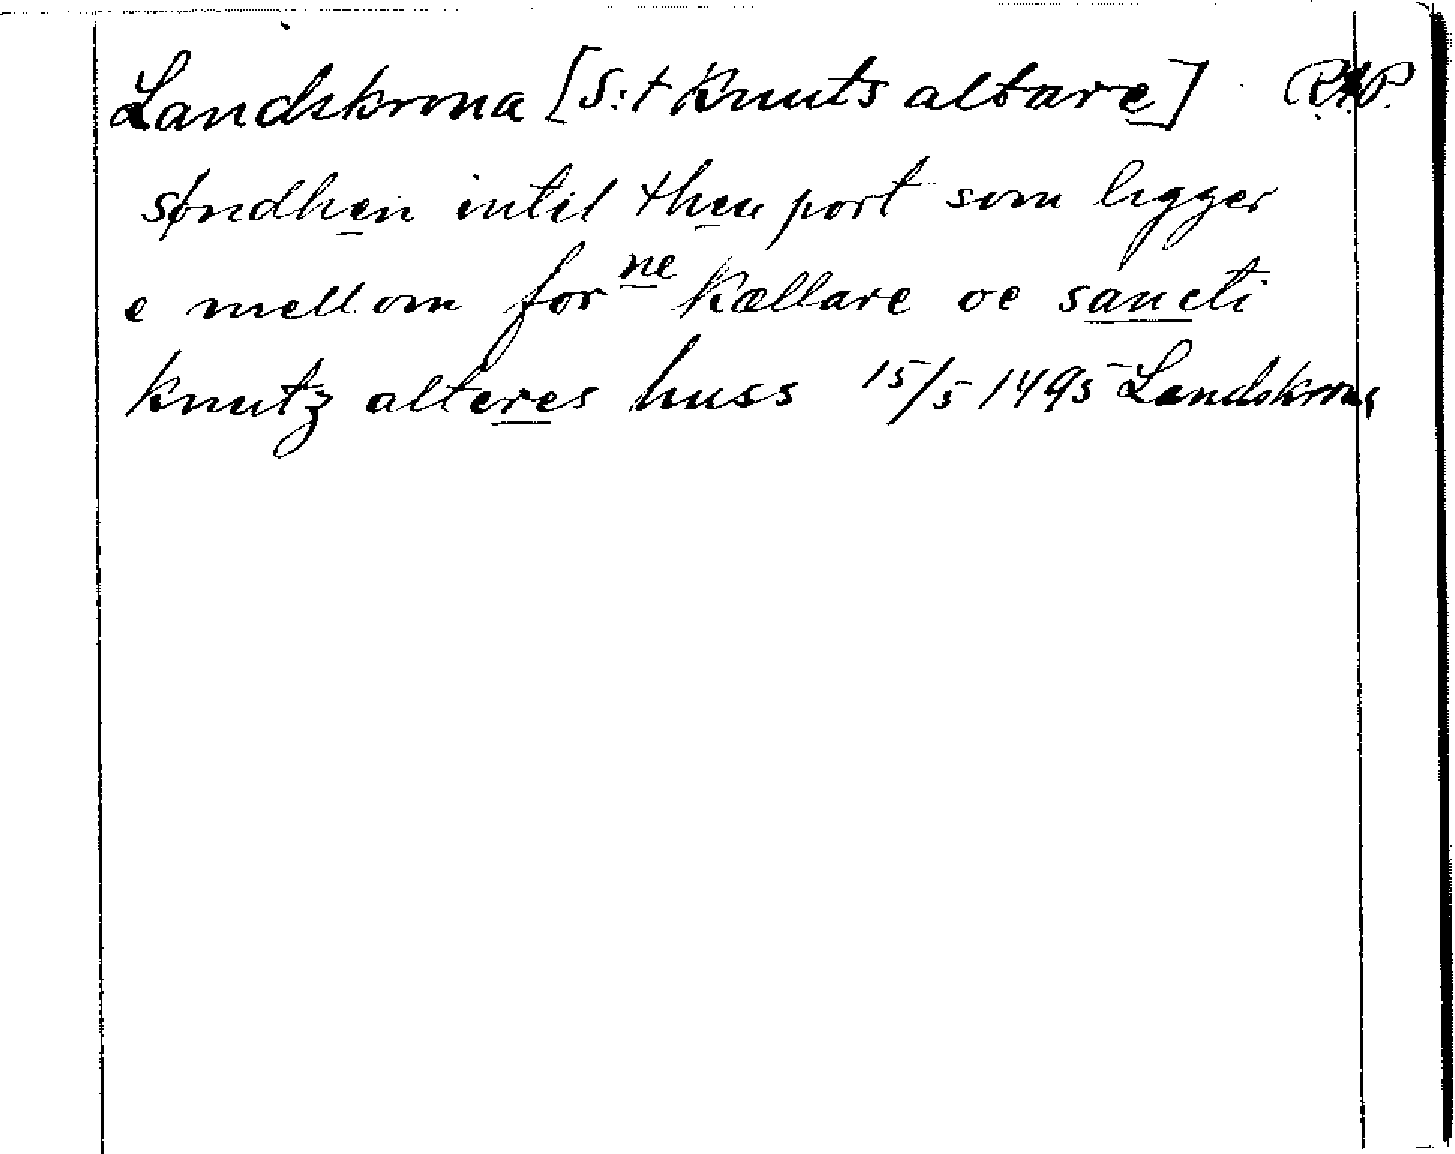 Landskrona [S:t Knuts altare] RAP.
søndhen intil then port som ligger
e mellom for ne kællare oc sancti
knutz alteres huss 15/5 1495 Landskrona